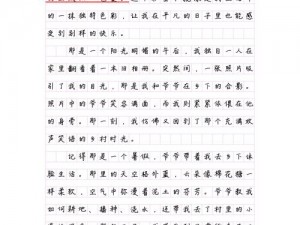 的一抹独特色彩，让我在平凡的日子里也能感
受到别样的快乐。
那是一个阳光明媚的午后，我独自一人在
家里翻看着一本旧相册。突然间，一张照片吸
引了我的目光，那是我和爷爷在乡下的合影。
照片中的爷爷笑容满面，而我则紧紧依偎在他
的身旁。那一刻，我仿佛又回到了那个充满欢
声笑语的乡村时光。
记得那是一个暑假，爷爷带着我去乡下体
验生活。那里的天空格外蓝，云朵像棉花糖一
样柔软，空气中弥漫着泥土的芬芳。爷爷教我
如何耕地、播种、浇水，还带我去了村里的小